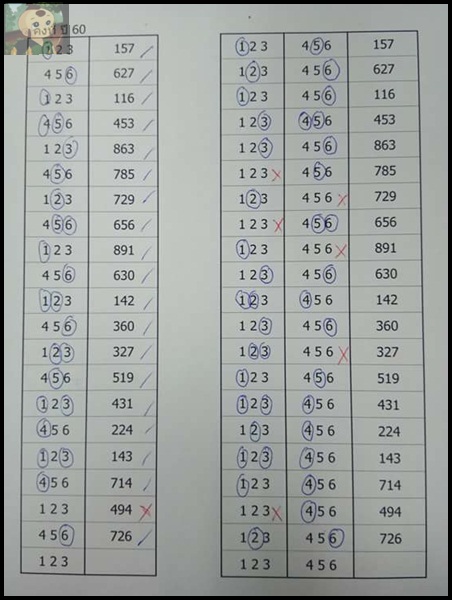 ปี 60
1 2 3 157 1 2 3 4 5 6 157
4 5 6 627 1 2 3 4 5 6 627
1 2 3 116 1 2 3 4 5 6 116
4 5 6 453 1 2 3 4 5 6 453
1 2 3 863 1 2 3 4 5 6 863
4 5 6 785 1 2 3 4 5 6 785
1 2 3 729 1 2 3 4 5 6 729
4 5 6 656 1 2 3 4 5 6 656
1 2 3 891 1 2 3 4 5 6 891
4 5 6 630 1 2 3 4 5 6 630
1 2 3 142 1 2 3 4 5 6 142
4 5 6 360 1 2 3 4 5 6 360
1 2 3 327 1 2 3 4 5 6 327
4 5 6 519 1 2 3 4 5 6 519
1 2 3 431 1 2 3 4 5 6 431
4 5 6 224 1 2 3 4 5 6 224
1 2 3 143 1 2 3 4 5 6 143
4 5 6 714 1 2 3 4 5 6 714
1 2 3 494 1 2 3 4 5 6 494
4 5 6 726 1 2 3 4 5 6 726
1 2 3 1 2 3 4 5 6